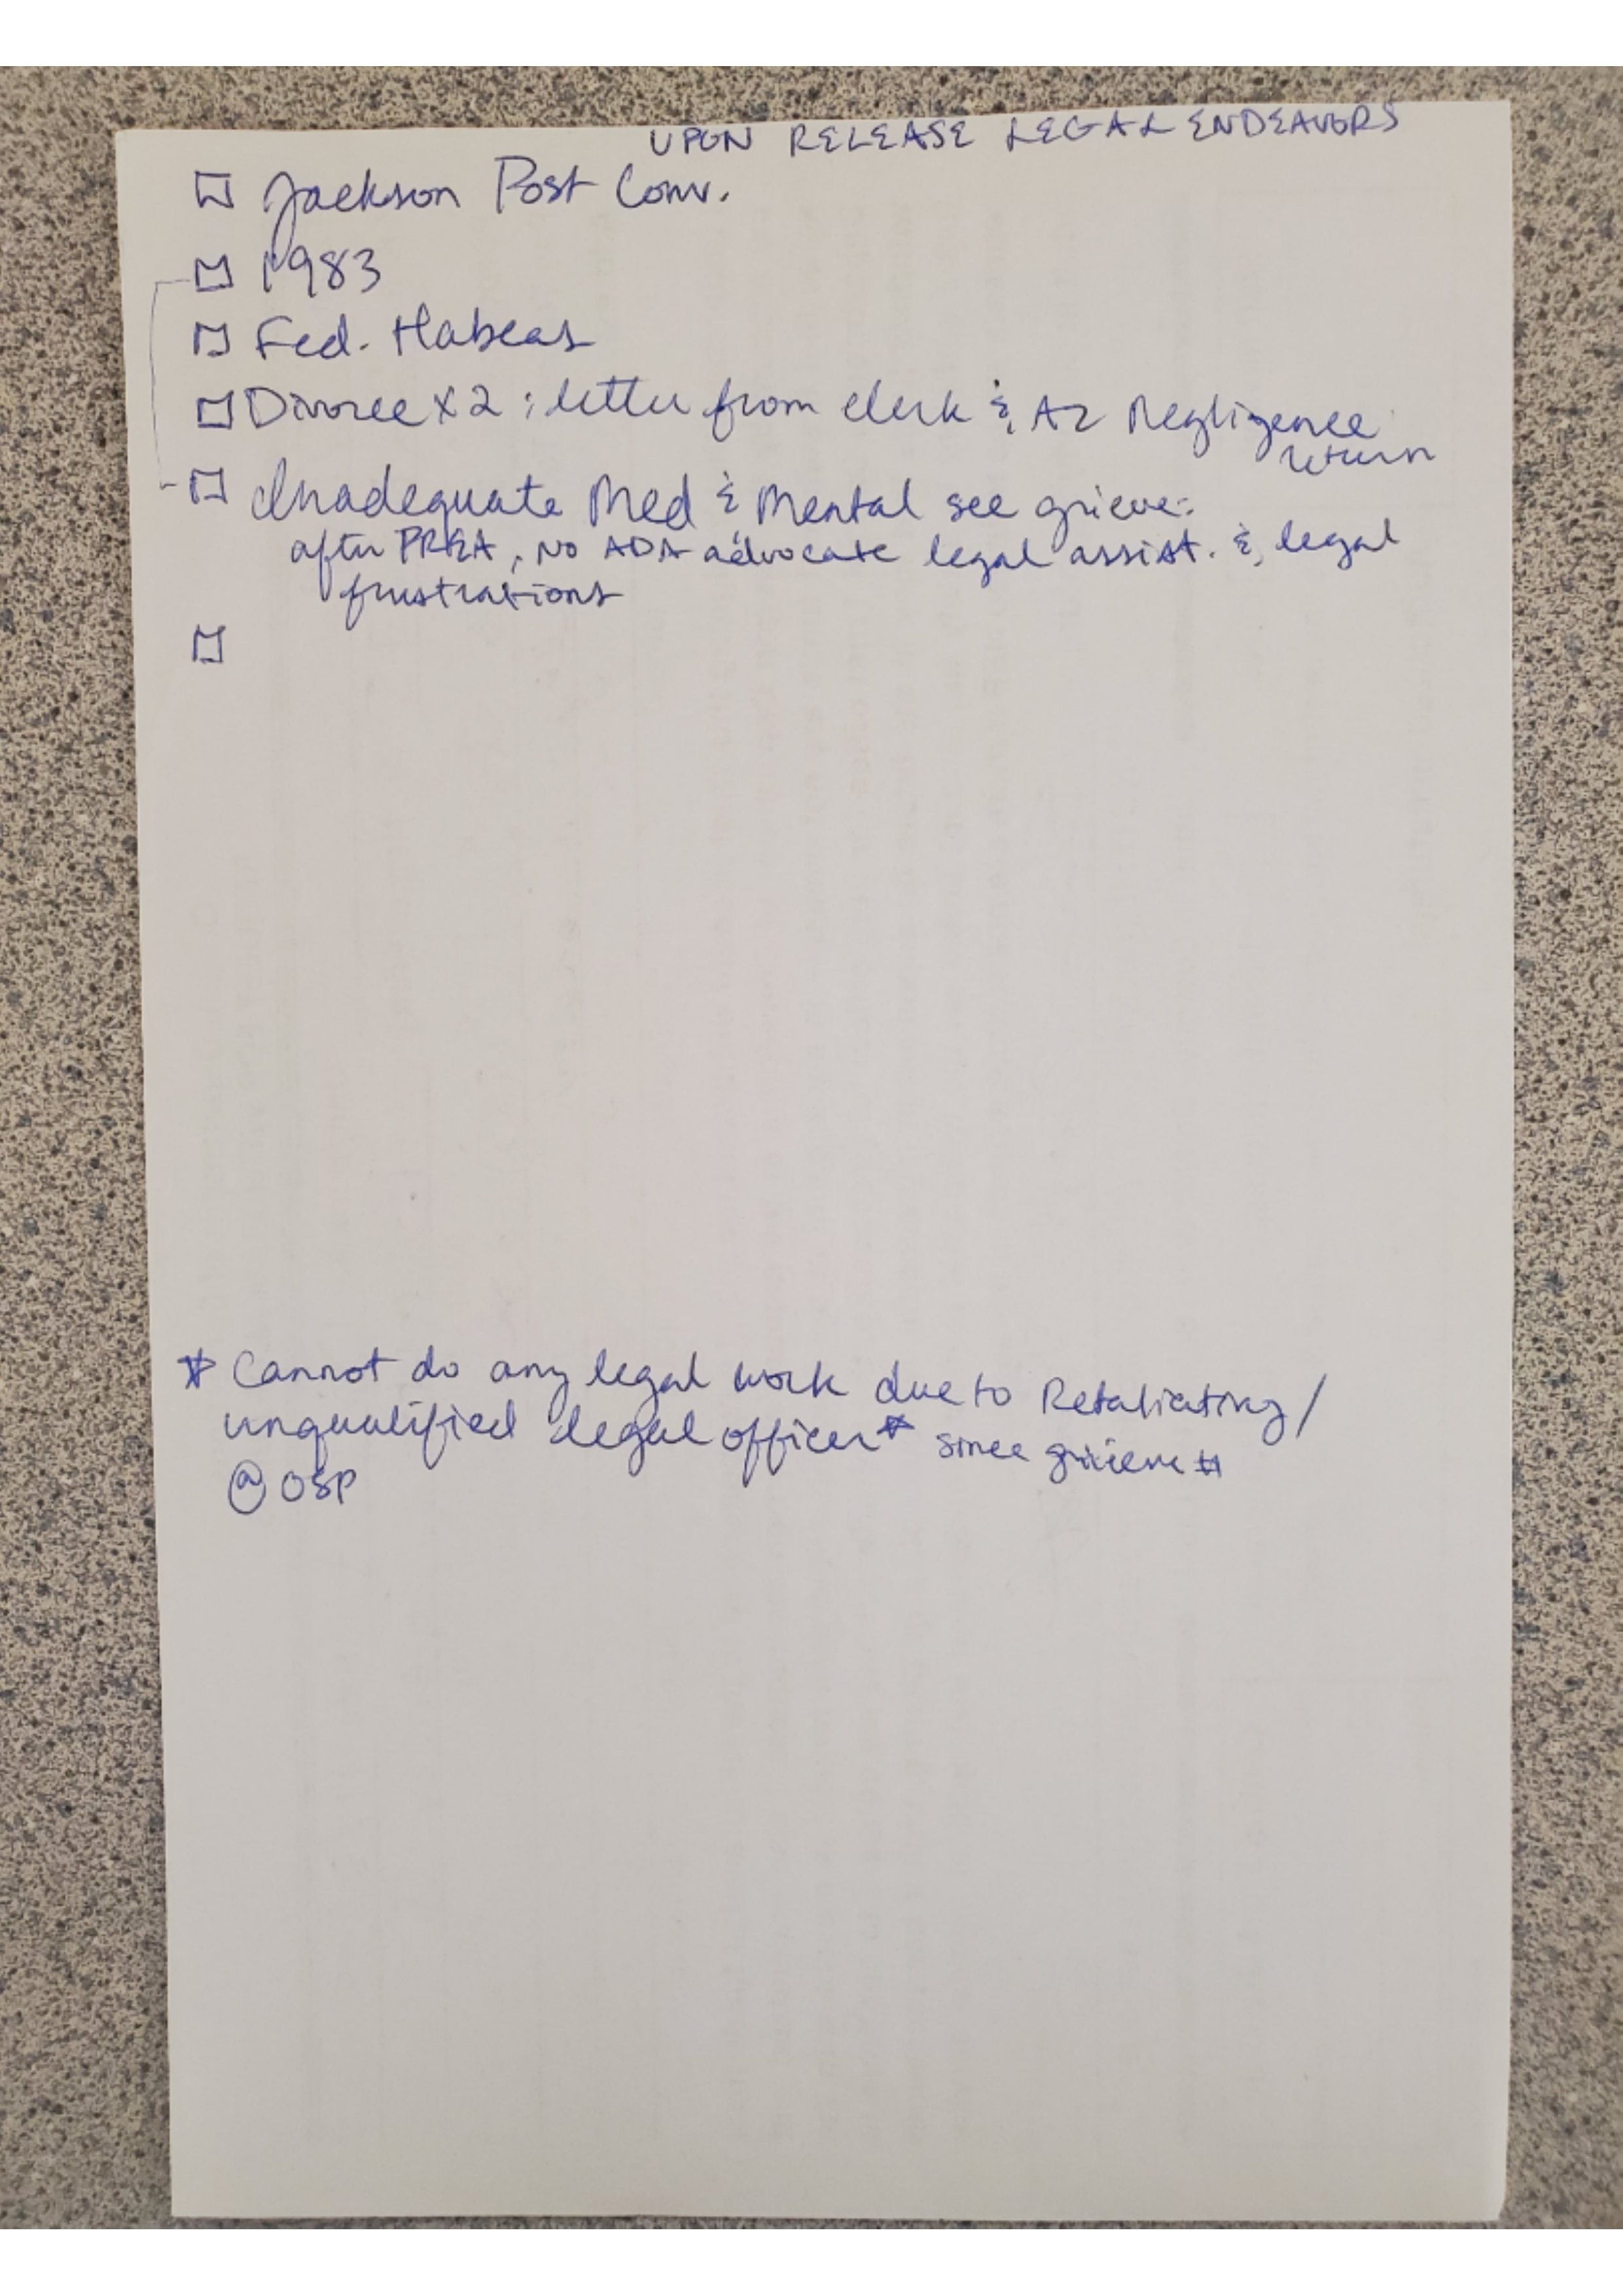 UPON RELEASE LEGAL ENDEAVORS
☐ Jackson Post Conv.
☐ 1983
☐ Fed. Habeas
☐ Divorce X2 : letter from clerk & AZ Negligence
return
☐ Inadequate Med & Mental see grieve:
after PREA, NO ADA advocate legal assist. & legal
frustrations
☐
* Cannot do any legal work due to Retaliating /
unqualified legal officer* since grieve #
@ OSP